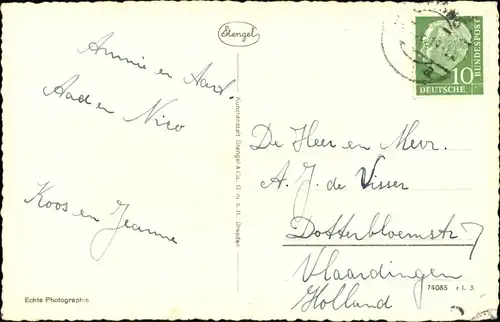 Stengel
Annie en Aard.
Aad en Nico
Koos en Jeanne
Echte Photographie
Kunstanstalt Stengel & Co., G.m.b.H. Dresden
10
DEUTSCHE
BUNDESPOST
De Heer en Mevr.
A. J. de Visser
Dotterbloemstr 7
Vlaardingen
Holland
74085